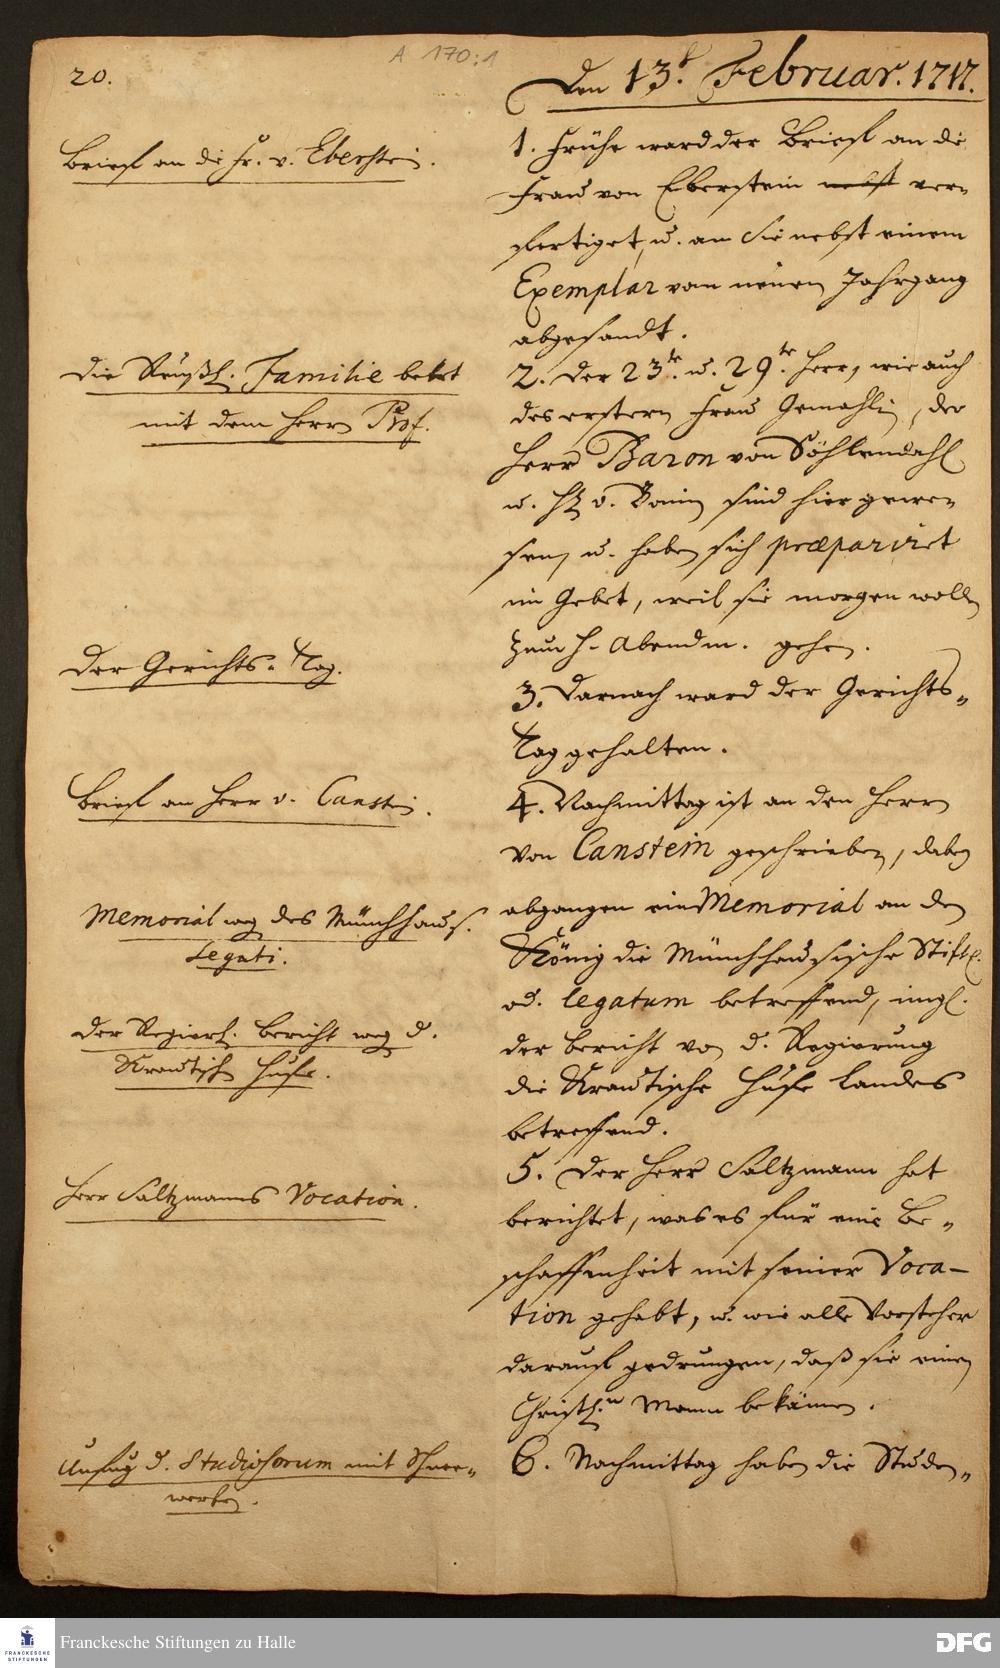 A 170:1
20.
Den 13.t Februar. 1717.
Brieff an die Fr. v. Eberstein.
1. Frühe ward der Brieff an die
Frau von Eberstein nebst ver-
fertiget, u. an Sie nebst einem
Exemplar vom neuen Jahrgang
abgesandt.
Die Reußl. Familie betet
mit dem Herrn Prof.
2. Der 23te. u. 29te. Herr, wie auch
des erstern Frau Gemahlin, der
Herr Baron von Söhlendahl
u. H v. Bonin sind hier gewe-
sen, u. haben sich præpariret
im Gebet, weil sie morgen wollen
zum H. Abendm. gehen.
Der Gerichts-Tag.
3. Darnach ward der Gerichts-
Tag gehalten.
Brieff an Herr v. Canstein.
4. Nachmittag ist an den Herrn
von Canstein geschrieben, dabey
Memorial weg des Münchhaus.
Legati.
abgangen ein Memorial an den
König die Münchhausische Stifft.
od. legatum betreffend, imgl.
Der Regierl. Bericht weg d.
Krautisch Hufe.
der Bericht von d. Regierung
die Krautische Hufe Landes
betreffend.
Herr Saltzmanns Vocation.
5. Der Herr Saltzmann hat
berichtet, was es für eine Be-
schaffenheit mit seiner Voca-
tion gehabt, u. wie alle Vorsteher
darauf gedrungen, daß sie einen
Christl.n Mann bekämen.
Unfug d. Studiosorum mit Schwer-
werken.
6. Nachmittag haben die Studen-
FRANCKESCHE STIFTUNGEN
Franckesche Stiftungen zu Halle
DFG